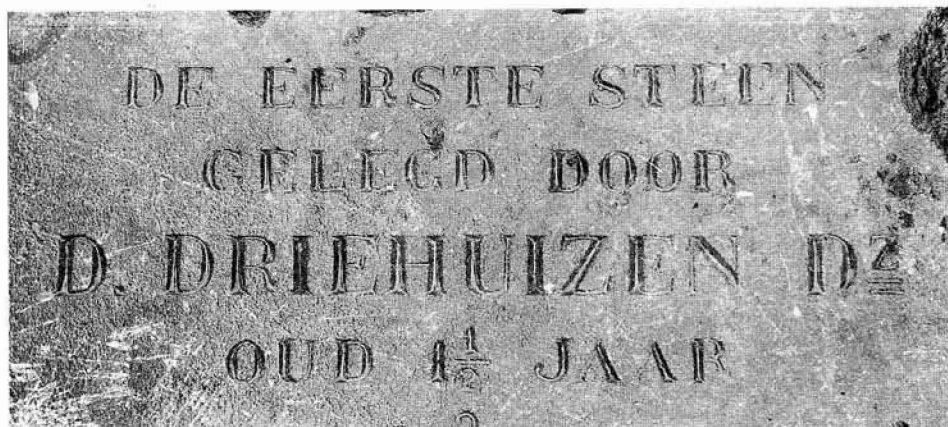 DE EERSTE STEEN
GELEGD DOOR
D. DRIEHUIZEN Dᶻ
OUD 1½ JAAR